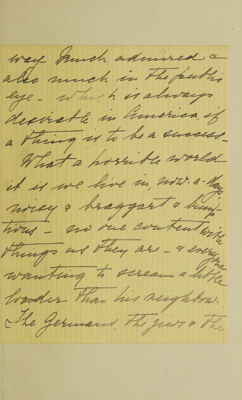 way much admired &
also much in the public
eye - which is always
desirable in America if
a thing is to be a success -
What a horrible world
it is we live in, now a days
noisy & braggart &
tious - no one content with
things as they are - & everyone
wanting to scream a little
louder than his neighbour.
The Germans, the Jews & the